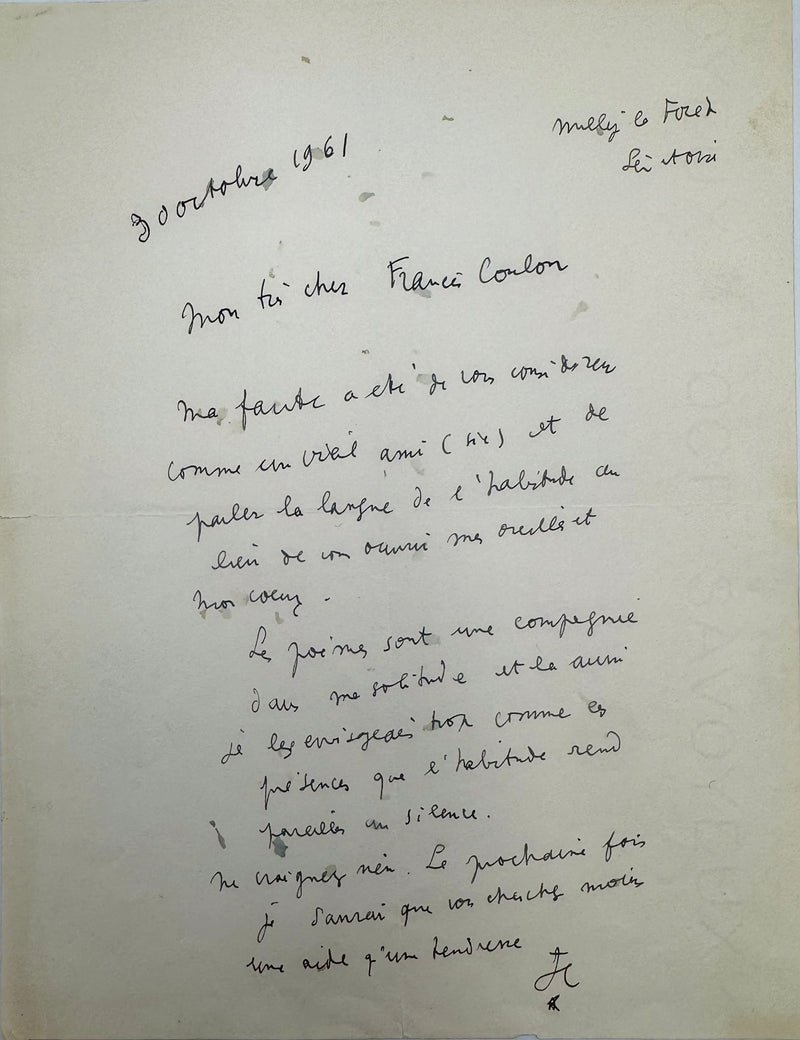 Milly la Foret
Sei et Oise
30 octobre 1961
Mon très cher Francis Coulon
Ma faute a été de vous considérer
comme un vieil ami (sic) et de
parler la langue de l'habitude au
lieu de vous ouvrir mes oreilles et
mon coeur.
Les poèmes sont une compagnie
dans ma solitude et là aussi
je les envisageais trop comme ces
présences que l'habitude rend
pareilles au silence.
Ne craignez rien. La prochaine fois
je saurai que vous cherchez moins
une aide qu'une tendresse
JC